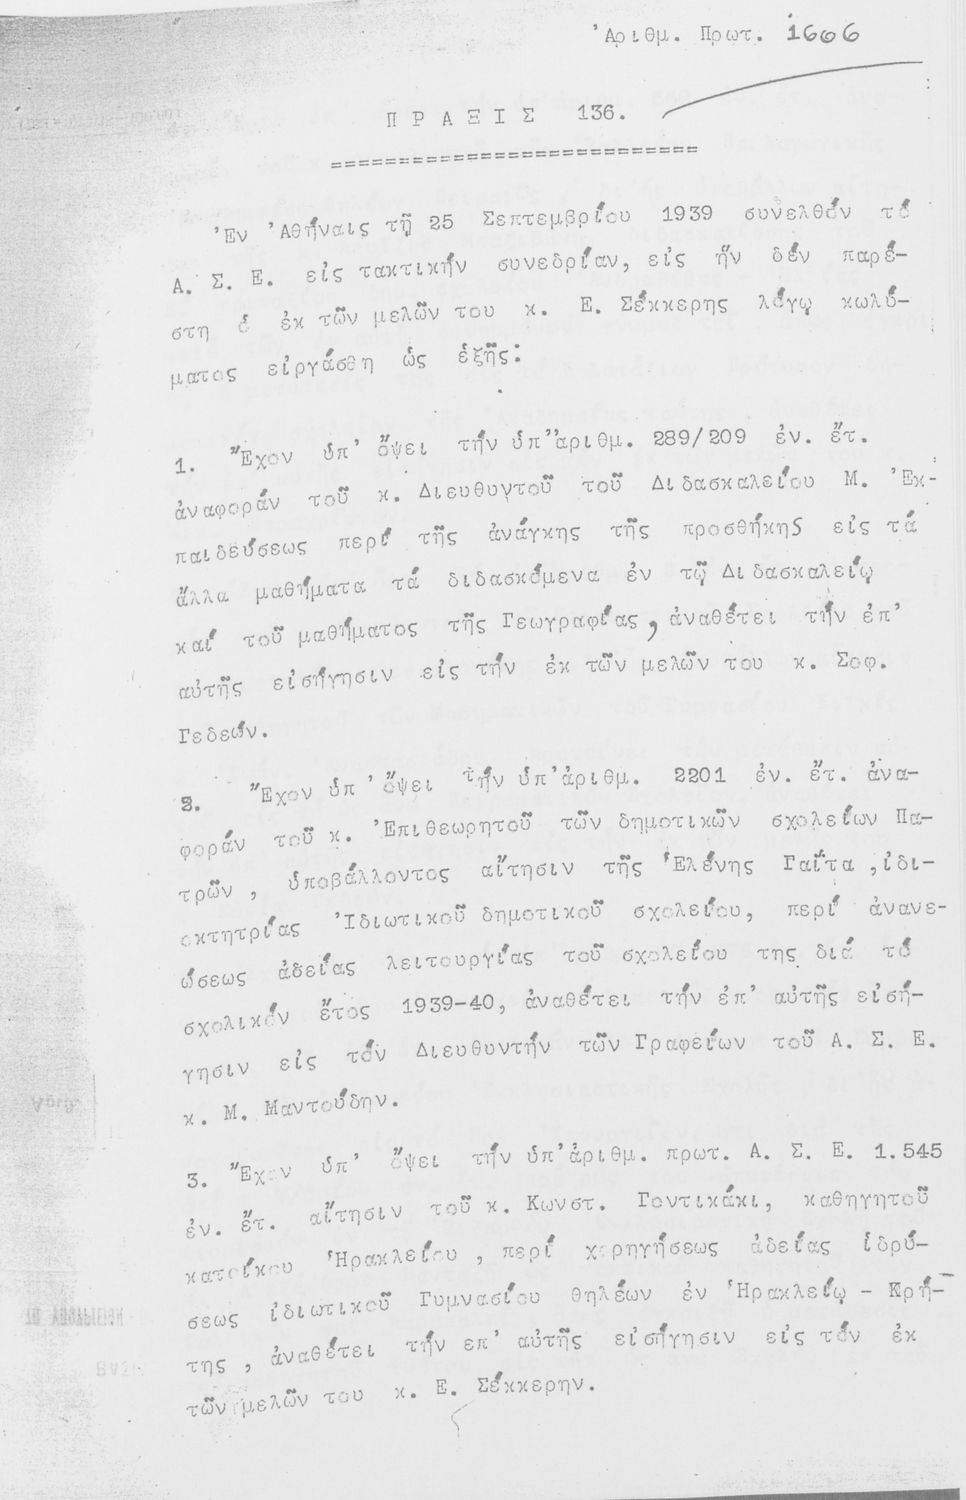 'Αριθμ. Πρωτ. 1666
ΠΡΑΞΙΣ 136.
===========================
'Εν 'Αθήναις τῇ 25 Σεπτεμβρίου 1939 συνελθόν τό
Α. Σ. Ε. εἰς τακτικήν συνεδρίαν, εἰς ἥν δέν παρέ-
στη ὁ ἐκ τῶν μελῶν του κ. Ε. Σέκκερης λόγῳ κωλύ-
ματος εἰργάσθη ὡς ἑξῆς:
1. "Εχον ὑπ' ὄψει τήν ὑπ'ἀριθμ. 289/209 ἐν. ἔτ.
ἀναφοράν τοῦ κ. Διευθυγτοῦ τοῦ Διδασκαλείου Μ. 'Εκ-
παιδεύσεως περί τῆς ἀνάγκης τῆς προσθήκης εἰς τά
ἄλλα μαθήματα τά διδασκόμενα ἐν τῷ Διδασκαλείῳ
καί τοῦ μαθήματος τῆς Γεωγραφίας, ἀναθέτει τήν ἐπ'
αὐτῆς εἰσήγησιν εἰς τήν ἐκ τῶν μελῶν του κ. Σοφ.
Γεδεών.
2. "Εχον ὑπ' ὄψει τήν ὑπ'ἀριθμ. 2201 ἐν. ἔτ. ἀνα-
φοράν τοῦ κ. 'Επιθεωρητοῦ τῶν δημοτικῶν σχολείων Πα-
τρῶν, ὑποβάλλοντος αἴτησιν τῆς 'Ελένης Γαΐτα, ἰδι-
οκτητρίας 'Ιδιωτικοῦ δημοτικοῦ σχολείου, περί ἀνανε-
ώσεως ἀδείας λειτουργίας τοῦ σχολείου της διά τό
σχολικόν ἔτος 1939-40, ἀναθέτει τήν ἐπ' αὐτῆς εἰσή-
γησιν εἰς τόν Διευθυντήν τῶν Γραφείων τοῦ Α. Σ. Ε.
κ. Μ. Μαντούδην.
3. "Εχον ὑπ' ὄψει τήν ὑπ'ἀριθμ. πρωτ. Α. Σ. Ε. 1.545
ἐν. ἔτ. αἴτησιν τοῦ κ. Κωνστ. Γοντικάκι, καθηγητοῦ
κατοίκου 'Ηρακλείου, περί χορηγήσεως ἀδείας ἱδρύ-
σεως ἰδιωτικοῦ Γυμνασίου θηλέων ἐν 'Ηρακλείῳ - Κρή-
της, ἀναθέτει τήν επ' αὐτῆς εἰσήγησιν εἰς τόν ἐκ
τῶν μελῶν του κ. Ε. Σέκκερην.